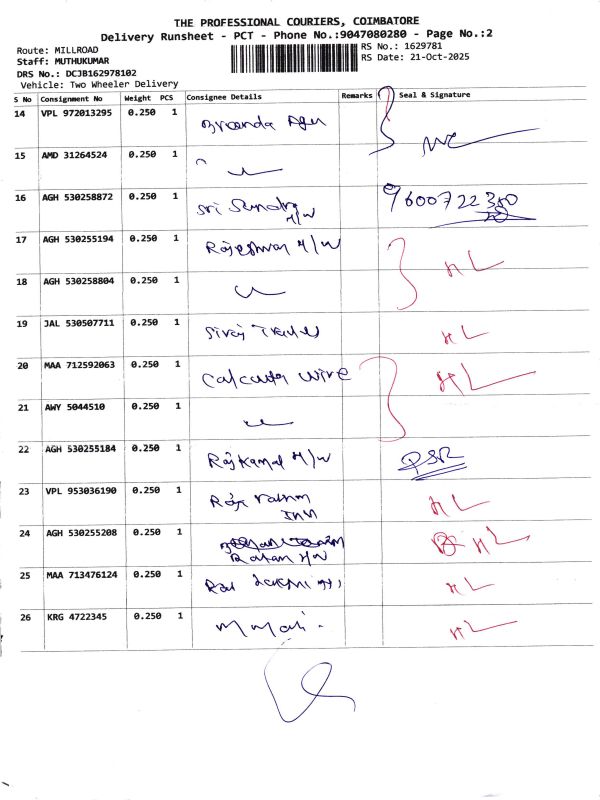 THE PROFESSIONAL COURIERS, COIMBATORE
Delivery Runsheet - PCT - Phone No.:9047080280 - Page No.:2
Route: MILLROAD
Staff: MUTHUKUMAR
DRS No.: DCJB162978102
Vehicle: Two Wheeler Delivery
RS No.: 1629781
RS Date: 21-Oct-2025
S No Consignment No Weight PCS Consignee Details Remarks Seal & Signature
14 VPL 972013295 0.250 1
15 AMD 31264524 0.250 1
16 AGH 530258872 0.250 1 Sri H/W 9600722350
17 AGH 530255194 0.250 1 Rajeshwar H/W HL
18 AGH 530258804 0.250 1
19 JAL 530507711 0.250 1 HL
20 MAA 712592063 0.250 1 Calcutta wire HL
21 AWY 5044510 0.250 1
22 AGH 530255184 0.250 1 Rajkamal H/W PSR
23 VPL 953036190 0.250 1 HL
INN
24 AGH 530255208 0.250 1 HL
Ratan H/W
25 MAA 713476124 0.250 1 HL
26 KRG 4722345 0.250 1 HL